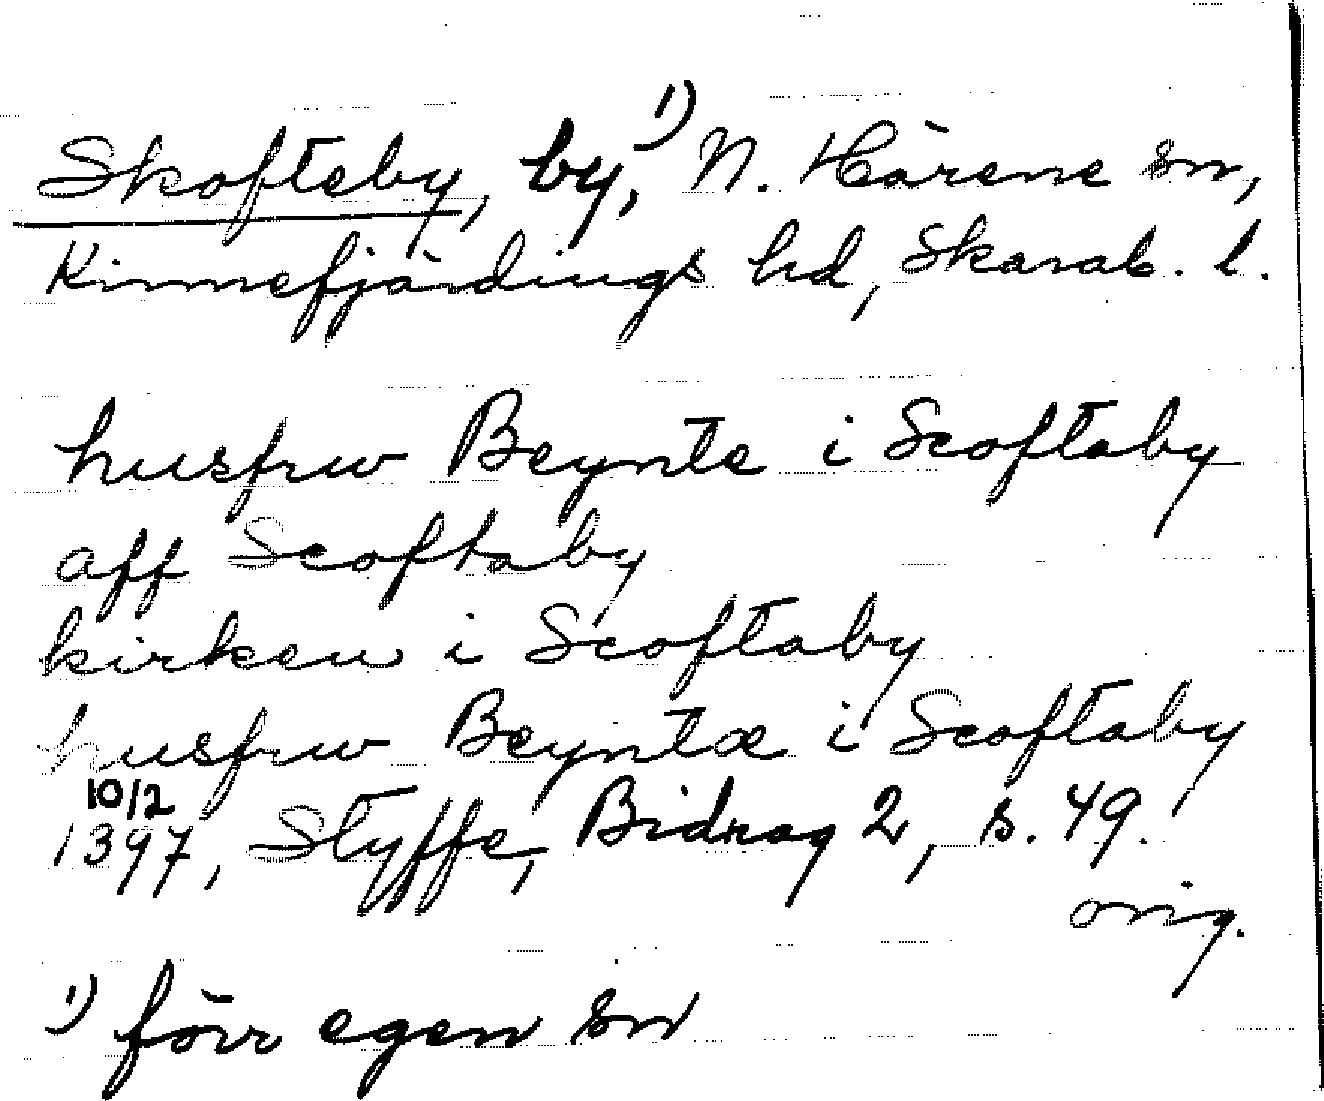 Skofteby, by,¹) N. Härene sn,
Kinnefjärdings hd, Skarab. l.
husfrw Beynte i Scoftaby
aff Scoftaby
kirken i Scoftaby
husfrw Beyntæ i Scoftaby
10/2
1397, Styffe, Bidrag 2, s. 49.
orig.
¹) förr egen sn